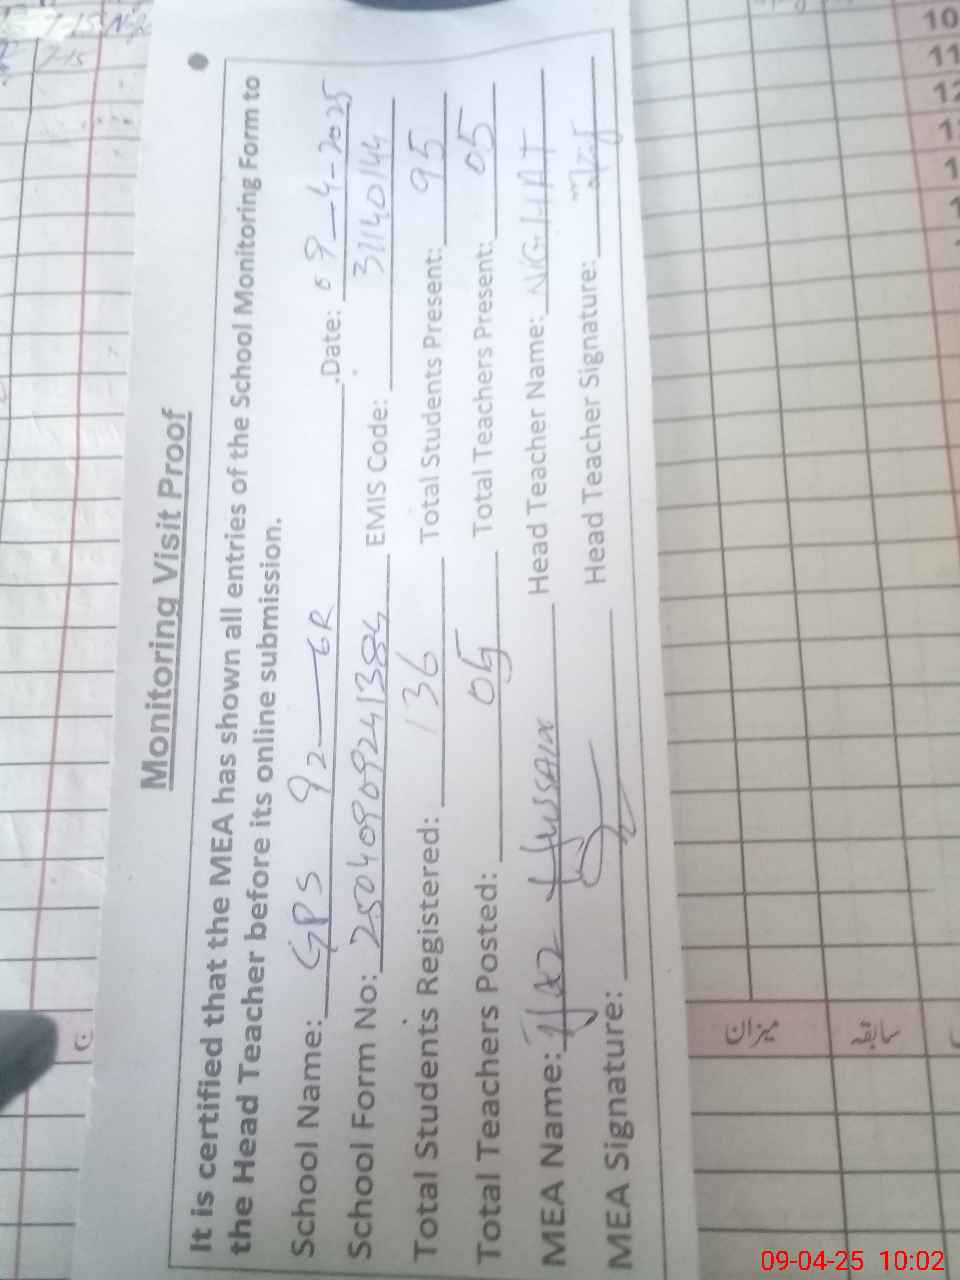 Monitoring Visit Proof
It is certified that the MEA has shown all entries of the School Monitoring Form to
the Head Teacher before its online submission.
School Name: GPS 92-6R Date: 09-4-2025
School Form No: 25040909241384 EMIS Code: 31140144
Total Students Registered: 136 Total Students Present: 95
Total Teachers Posted: 05 Total Teachers Present: 05
MEA Name: Ijaz Hussain Head Teacher Name:
MEA Signature: Head Teacher Signature:
10
11
12
میزان
سابقہ
09-04-25 10:02